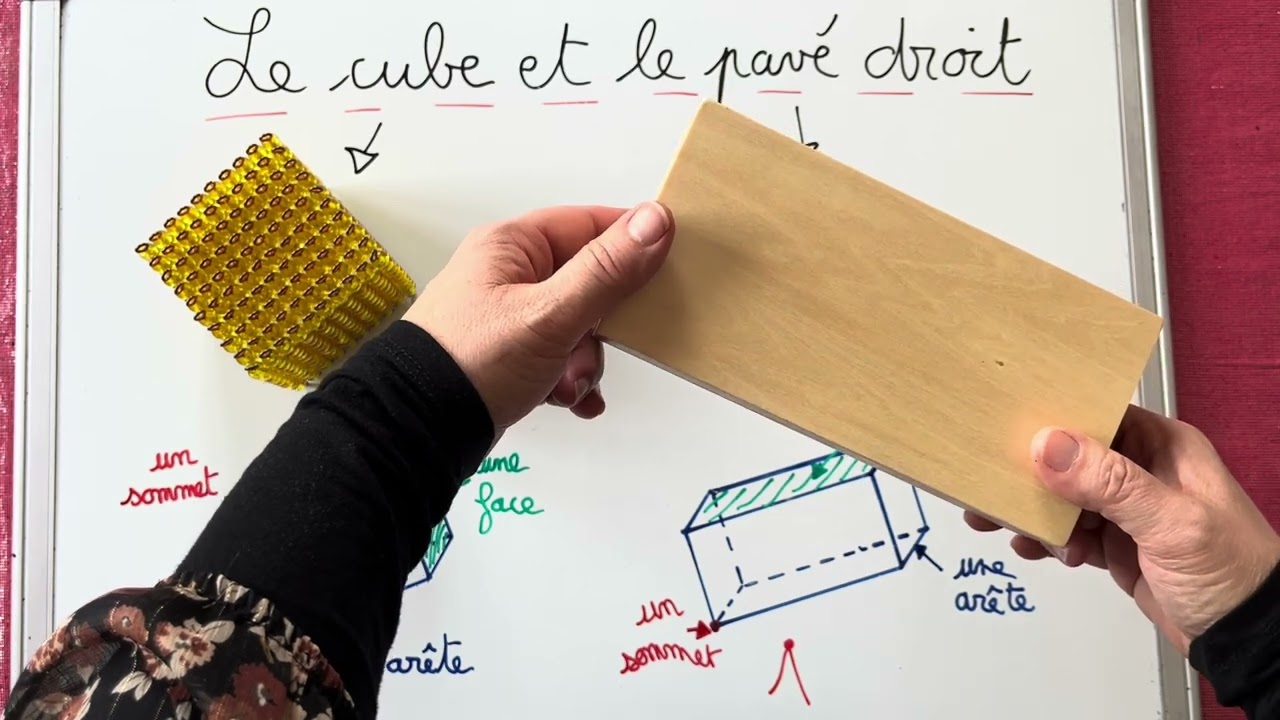 Le cube et le pavé droit
un
sommet
une
face
arête
un
sommet
une
arête